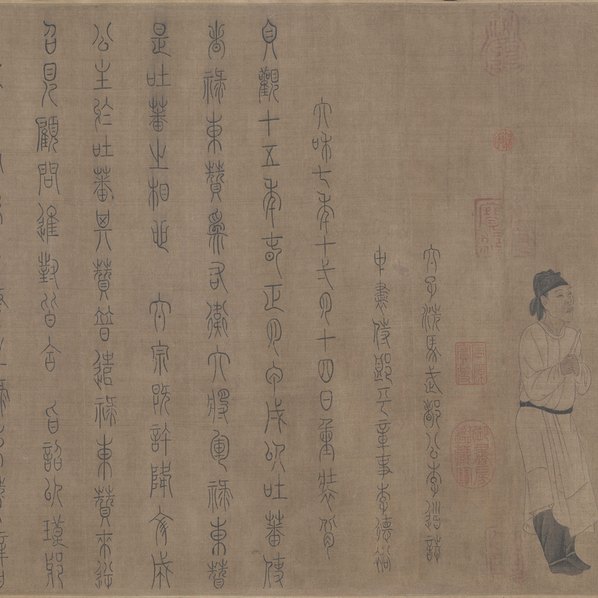 太子洗馬武都公李道誌
中書侍郎平章事李德裕
太和七年十弌月十四日重裝背
貞觀十五年春正月甲戌以吐蕃使
者祿東贊爲右衛大將軍祿東贊
是吐蕃之相也 太宗既許降文成
公主於吐蕃其贊普遣祿東贊來逆
召見顧問進對皆合 旨詔以琅邪